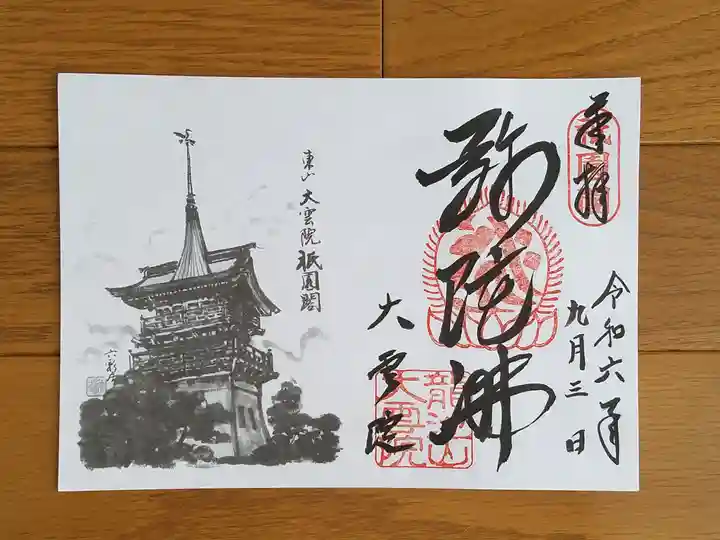 奉拝
祇園
令和六年
九月三日
弥陀佛
大雲院
龍池山
大雲院
東山 大雲院 祇園閣